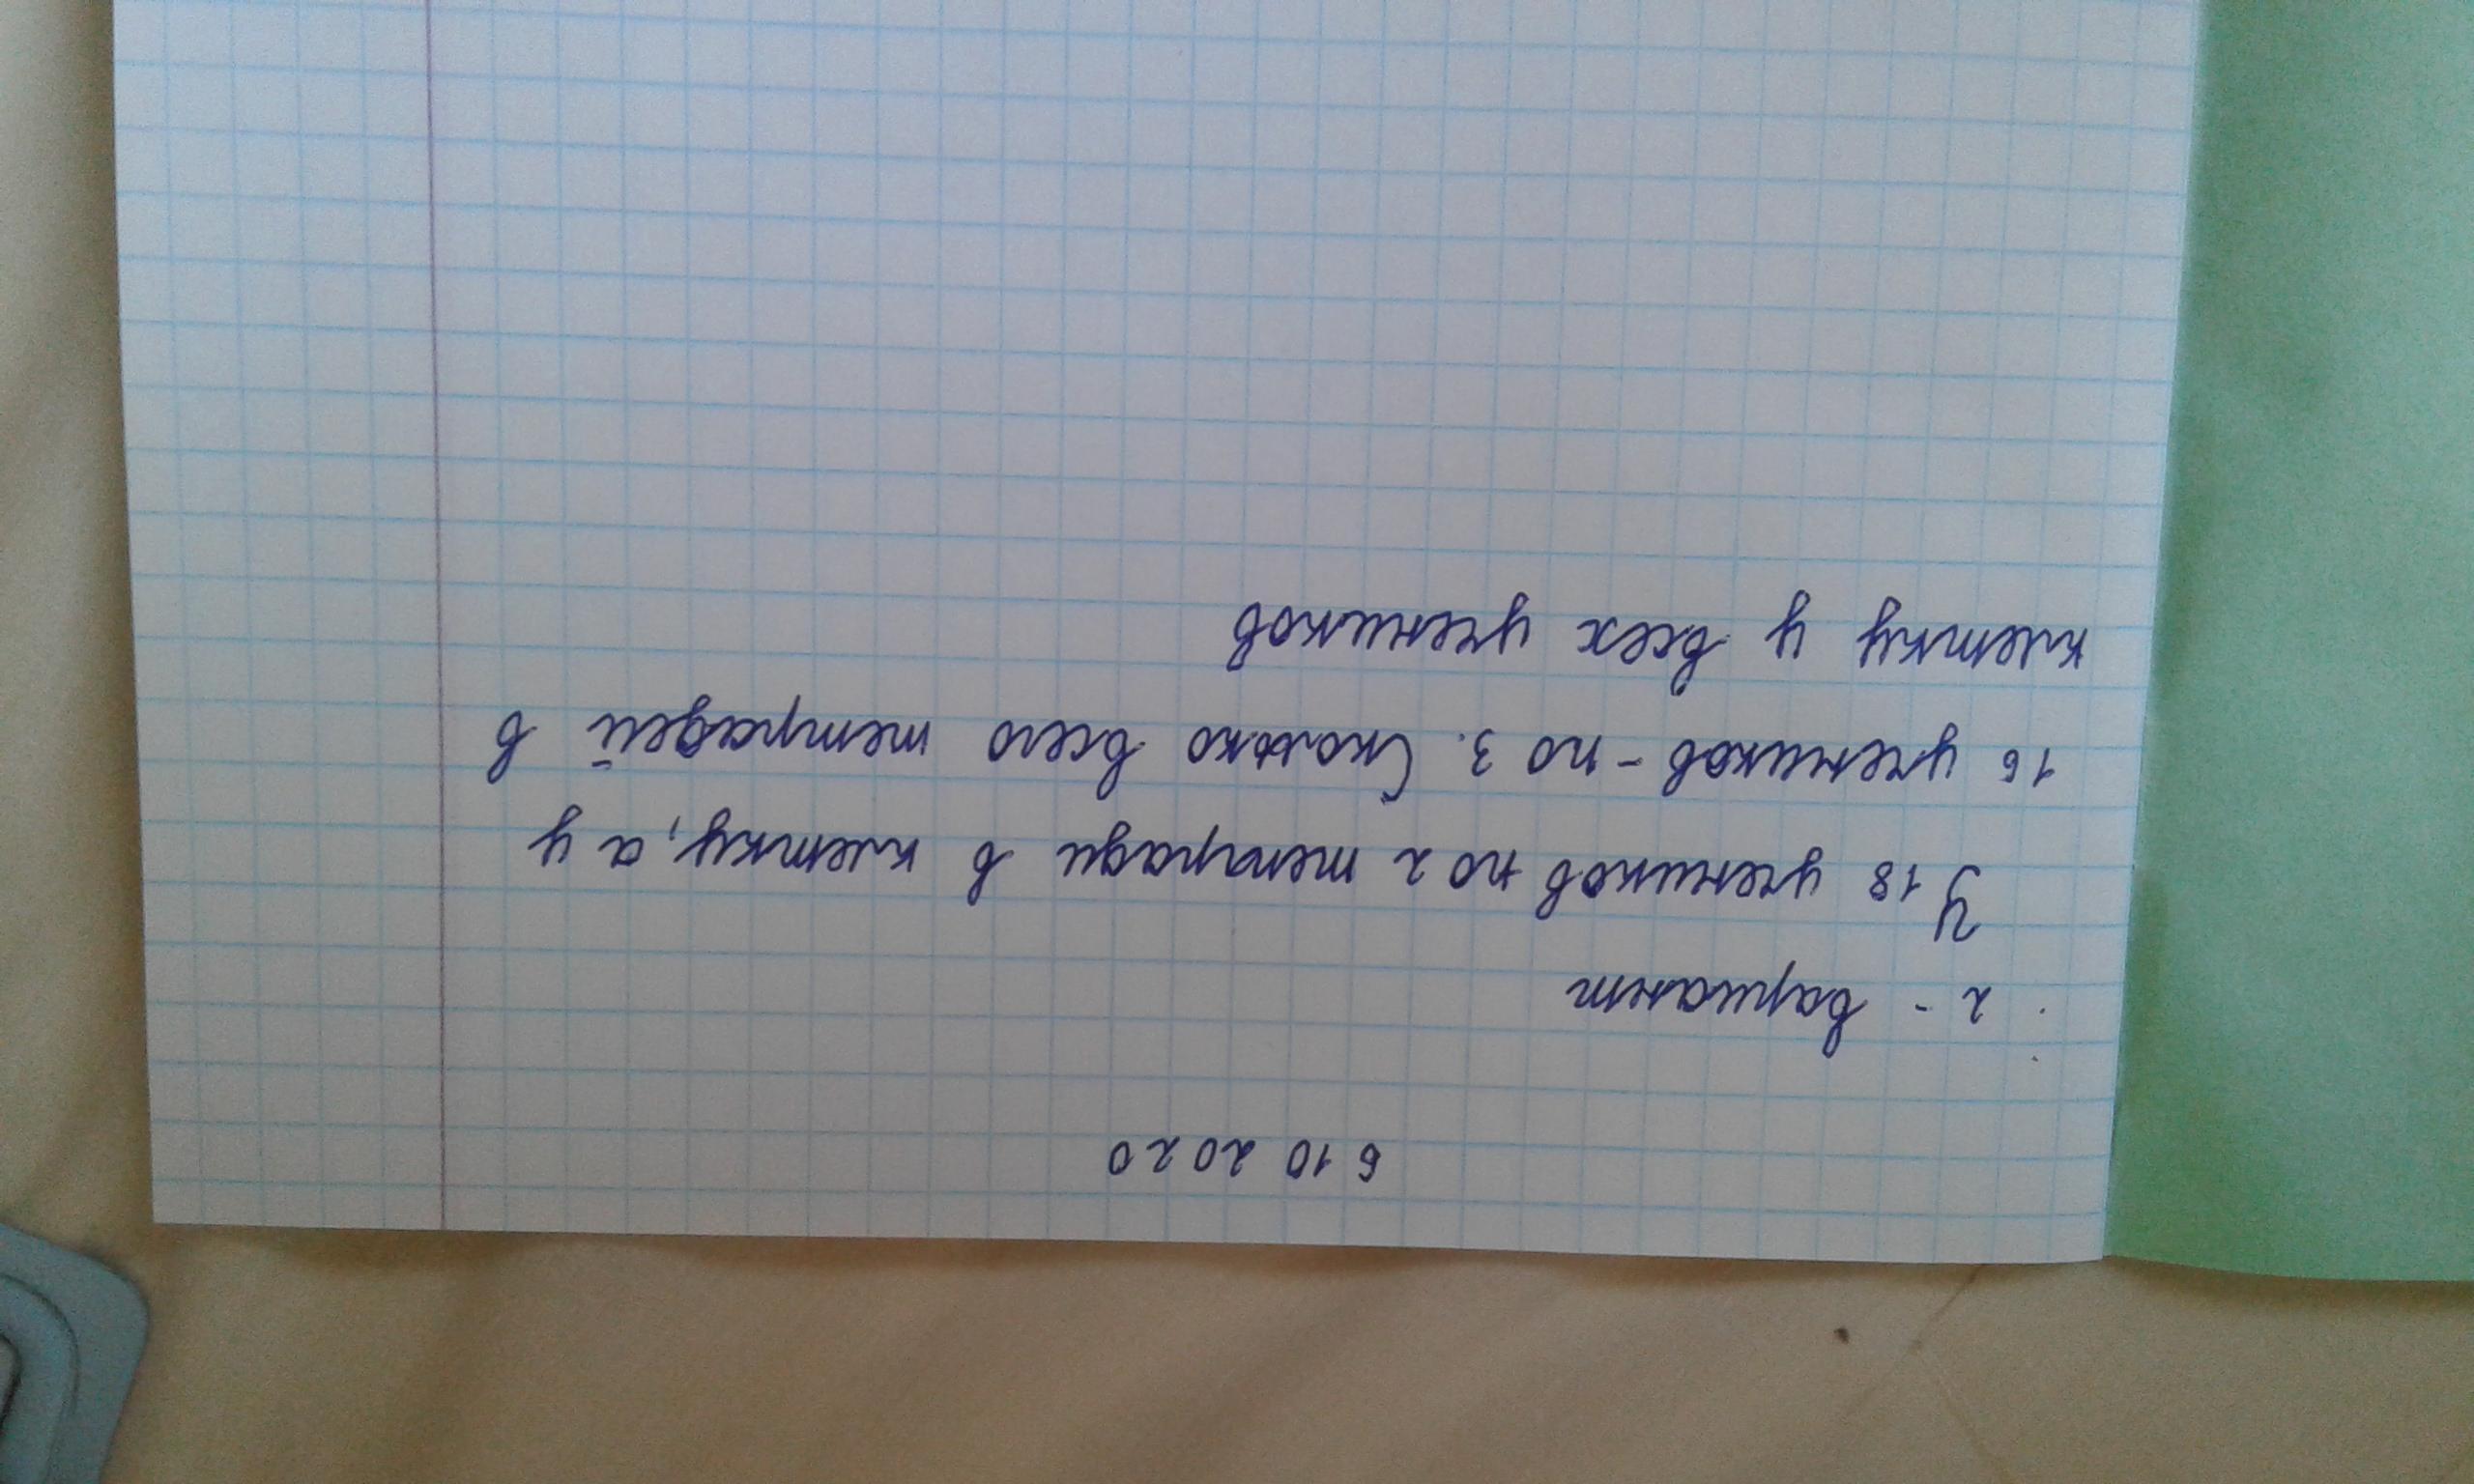 6 10 2020
2 - вариант
У 18 учеников по 2 тетради в клетку, а у
16 учеников - по 3. Сколько всего тетрадей в
клетку у всех учеников